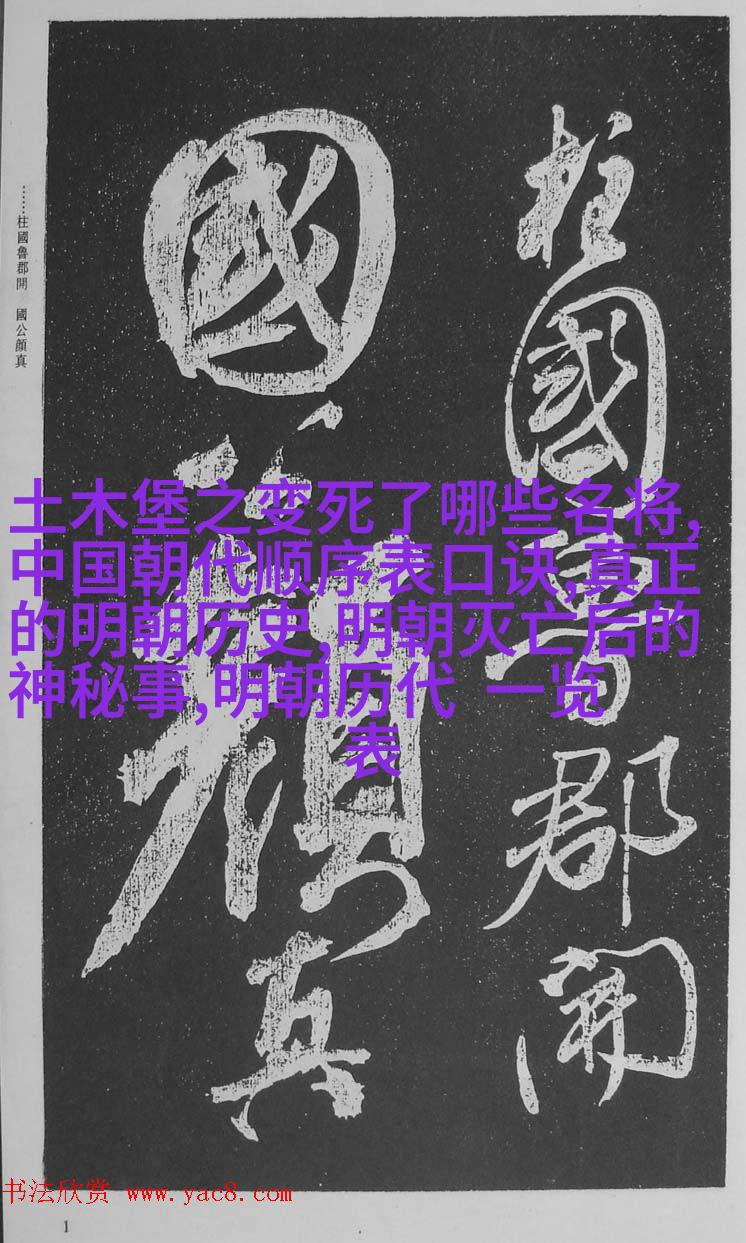 柱國魯郡開
國公顔真
……柱國魯郡開　國公顔真
土木堡之变死了哪些名将,
中国朝代顺序表口诀,真正
的明朝历史,明朝灭亡后的
神秘事,明朝历代 一览
表
书法欣赏 www.yac8.com
1